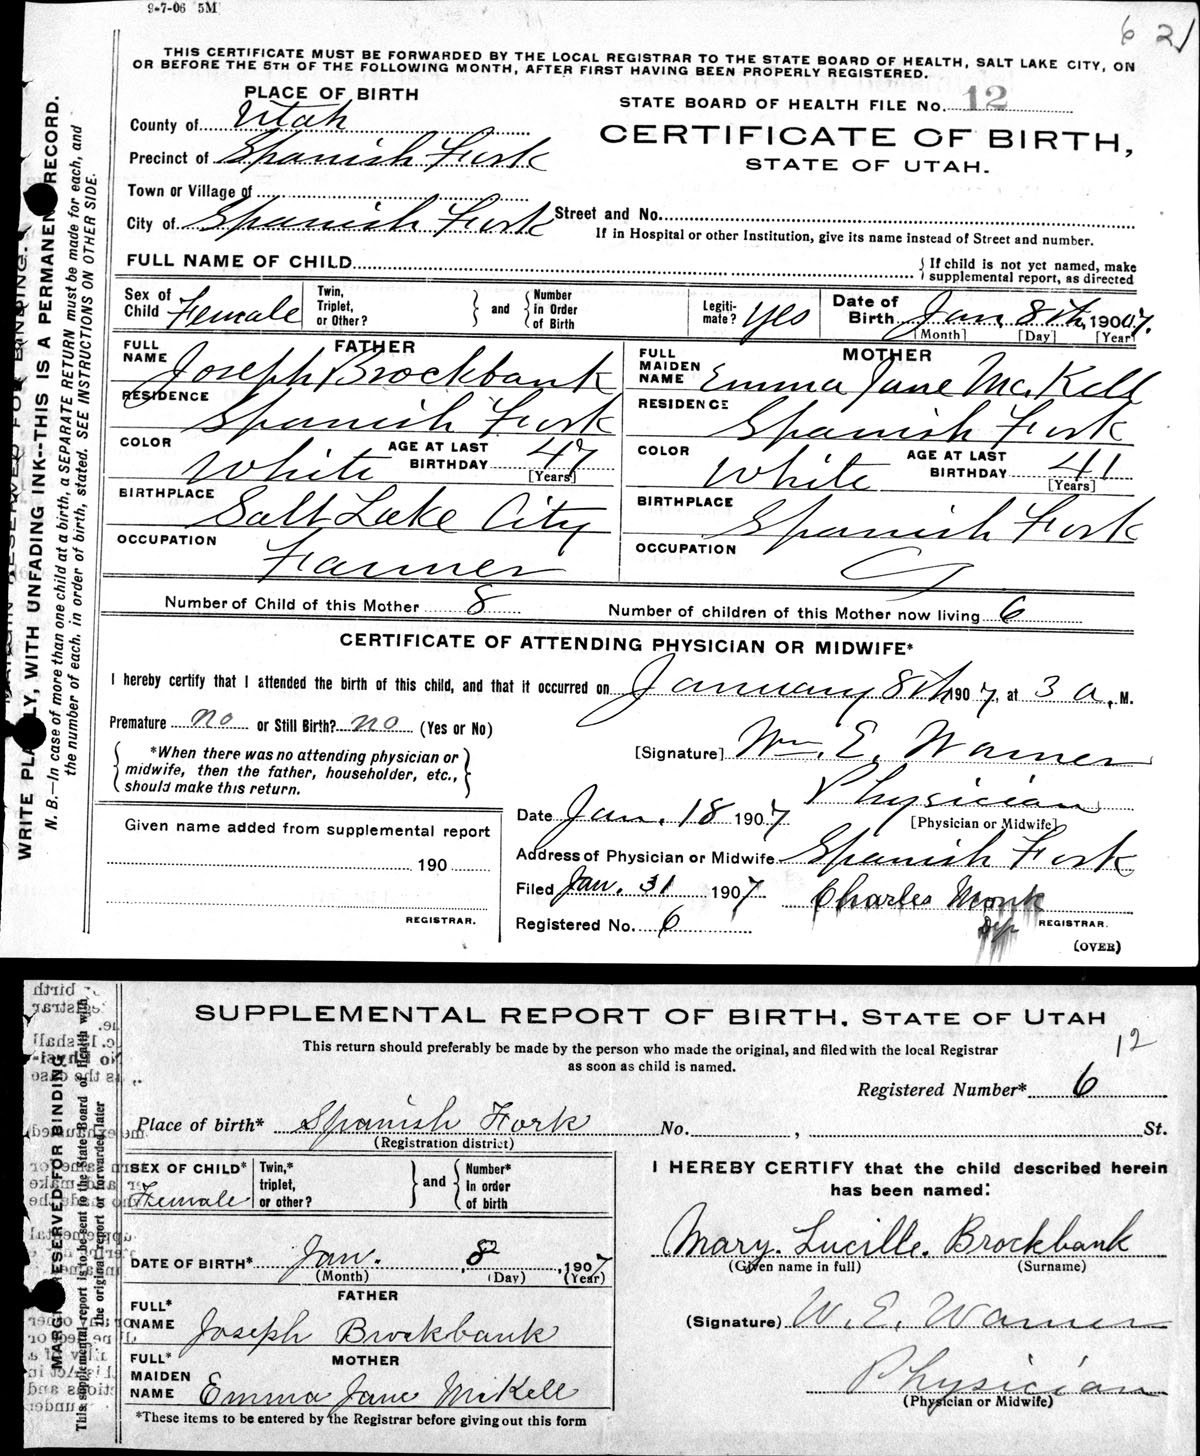 9-7-06 5M
6 21
THIS CERTIFICATE MUST BE FORWARDED BY THE LOCAL REGISTRAR TO THE STATE BOARD OF HEALTH, SALT LAKE CITY, ON
OR BEFORE THE 5TH OF THE FOLLOWING MONTH, AFTER FIRST HAVING BEEN PROPERLY REGISTERED.
PLACE OF BIRTH
STATE BOARD OF HEALTH FILE No. 12
County of Utah
CERTIFICATE OF BIRTH,
Precinct of Spanish Fork
STATE OF UTAH.
Town or Village of
City of Spanish Fork Street and No.
If in Hospital or other Institution, give its name instead of Street and number.
FULL NAME OF CHILD {If child is not yet named, make
supplemental report, as directed
Sex of Child Female Twin, Triplet, or Other? } and { Number in Order of Birth Legiti-mate? yes Date of Birth Jan 8th, 1907.
[Month] [Day] [Year]
FATHER
FULL NAME Joseph Brockbank
RESIDENCE Spanish Fork
COLOR White AGE AT LAST BIRTHDAY 47 [Years]
BIRTHPLACE Salt Lake City
OCCUPATION Farmer
MOTHER
FULL MAIDEN NAME Emma Jane McKell
RESIDENCE Spanish Fork
COLOR White AGE AT LAST BIRTHDAY 41 [Years]
BIRTHPLACE Spanish Fork
OCCUPATION
Number of Child of this Mother 8 Number of children of this Mother now living 6
CERTIFICATE OF ATTENDING PHYSICIAN OR MIDWIFE*
I hereby certify that I attended the birth of this child, and that it occurred on January 8th 1907, at 3 a. M.
Premature no or Still Birth? no (Yes or No)
[Signature] Wm. E. Warner
{ *When there was no attending physician or
midwife, then the father, householder, etc.,
should make this return. }
Physician
[Physician or Midwife]
Date Jan. 18 1907
Address of Physician or Midwife Spanish Fork
Filed Jan. 31 1907 Charles Monk
Dep REGISTRAR.
Registered No. 6
(OVER)
Given name added from supplemental report
190
REGISTRAR.
MARGIN RESERVED FOR BINDING.
WRITE PLAINLY, WITH UNFADING INK--THIS IS A PERMANENT RECORD.
N. B.—In case of more than one child at a birth, a SEPARATE RETURN must be made for each, and
the number of each, in order of birth, stated. SEE INSTRUCTIONS ON OTHER SIDE.
SUPPLEMENTAL REPORT OF BIRTH, STATE OF UTAH
This return should preferably be made by the person who made the original, and filed with the local Registrar
as soon as child is named.
12
Registered Number* 6
Place of birth* Spanish Fork No. , St.
(Registration district)
SEX OF CHILD* Female Twin,* triplet, or other? } and { Number* in order of birth
DATE OF BIRTH* Jan. 8, 1907
(Month) (Day) (Year)
FATHER
FULL* NAME Joseph Brockbank
MOTHER
FULL* MAIDEN NAME Emma Jane McKell
*These items to be entered by the Registrar before giving out this form
I HEREBY CERTIFY that the child described herein
has been named:
Mary. Lucille. Brockbank
(Given name in full) (Surname)
(Signature) W. E. Warner
Physician
(Physician or Midwife)
MARGIN RESERVED FOR BINDING
This supplemental report is to be sent to the State Board of Health with
the original report or forwarded later